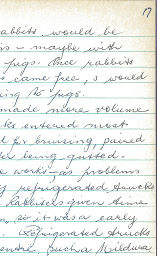 17
rabbits, would be
is - maybe with
pigs. Once rabbits
came free, s would
ing to pigs.
made more volume
ks entered most
d for bruising paired
er being gutted.
e works - as problems
y refrigerated trucks
Rabbiters given
so it was a early
Refrigerated trucks
entre, such a Mildura